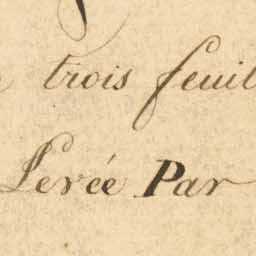 trois feuil
Levée Par